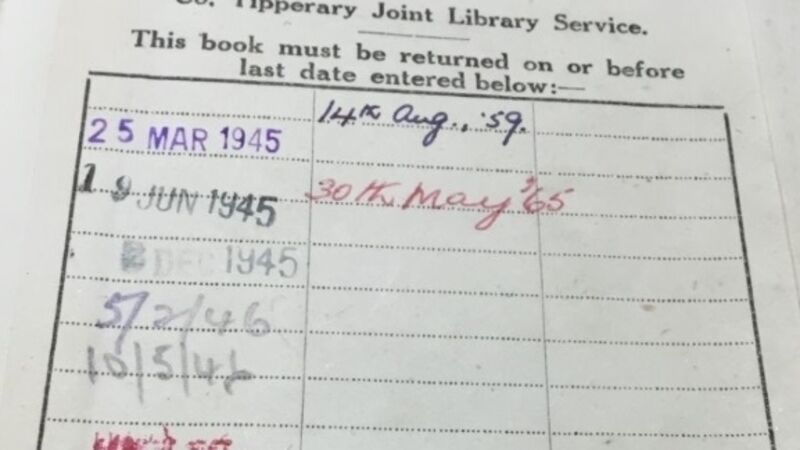 Co. Tipperary Joint Library Service.
This book must be returned on or before
last date entered below:—
14th Aug., '59.
25 MAR 1945
30th May '65
19 JUN 1945
2 DEC 1945
5/2/46
10/5/46